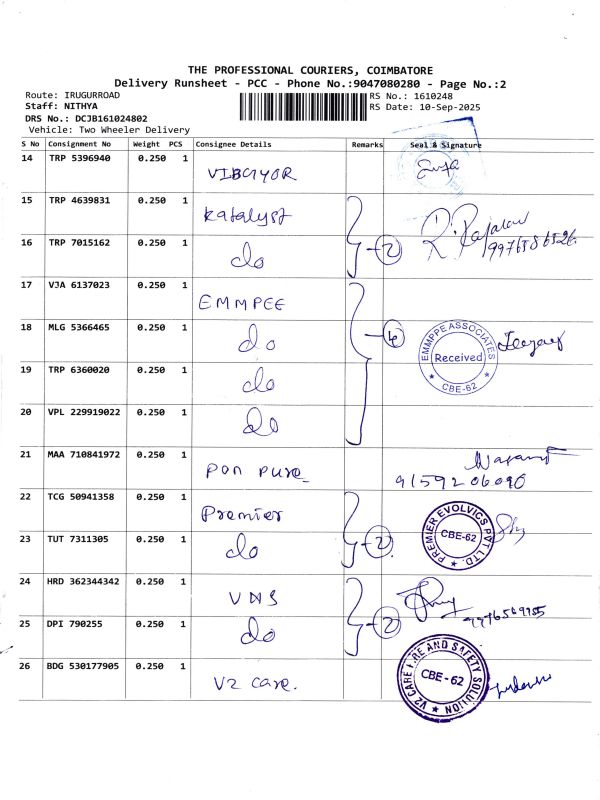 THE PROFESSIONAL COURIERS, COIMBATORE
Delivery Runsheet - PCC - Phone No.:9047080280 - Page No.:2
Route: IRUGURROAD
Staff: NITHYA
DRS No.: DCJB161024802
Vehicle: Two Wheeler Delivery
RS No.: 1610248
RS Date: 10-Sep-2025
S No Consignment No Weight PCS Consignee Details Remarks Seal & Signature
14 TRP 5396940 0.250 1 VIBGYOR
15 TRP 4639831 0.250 1 Katalyst
16 TRP 7015162 0.250 1 do 2
9976586526
17 VJA 6137023 0.250 1 EMMPEE
18 MLG 5366465 0.250 1 do 4
EMMPPE ASSOCIATES
Received
CBE-62
19 TRP 6360020 0.250 1 do
20 VPL 229919022 0.250 1 do
21 MAA 710841972 0.250 1 Pon pure
9159206090
22 TCG 50941358 0.250 1 Premier
23 TUT 7311305 0.250 1 do 2
PREMIER EVOLVICS PVT LTD.
CBE-62
24 HRD 362344342 0.250 1 VNS
25 DPI 790255 0.250 1 do 2
26 BDG 530177905 0.250 1 V2 care.
V2 CARE FIRE AND SAFETY SOLUTION
CBE-62